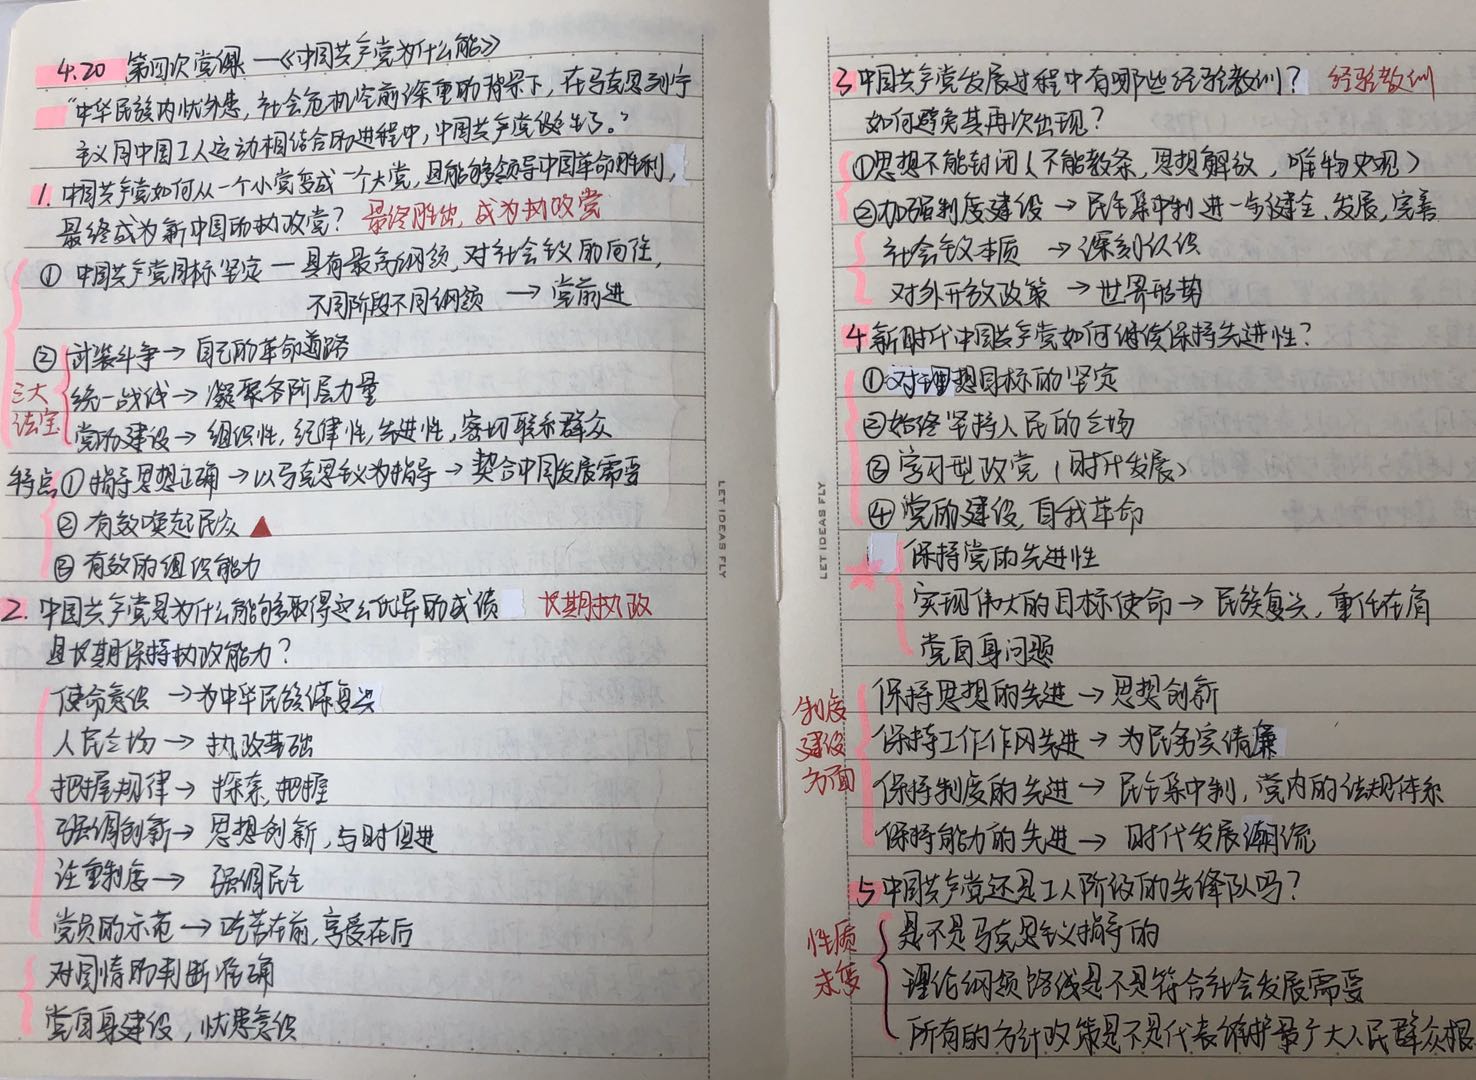 4.20 第四次党课—《中国共产党为什么能》
"中华民族内忧外患,社会危机空前深重的背景下,在马克思列宁
主义同中国工人运动相结合的进程中,中国共产党诞生了。"
1. 中国共产党如何从一个小党变成一个大党,且能够领导中国革命胜利,
最终成为新中国的执政党? 最终胜出,成为执政党
① 中国共产党目标坚定—具有最高纲领,对社会主义的向往,
不同阶段不同纲领 → 党前进
② 武装斗争→ 自己的革命道路
三大法宝
统一战线→ 凝聚各阶层力量
党的建设→ 组织性,纪律性,先进性,密切联系群众
特点① 指导思想正确→以马克思主义为指导→契合中国发展需要
② 有效唤起民众
③ 有效的组织能力
2. 中国共产党是为什么能够取得这么优异的成绩 长期执政
且长期保持执政能力?
使命意识 →为中华民族谋复兴
人民立场→ 执政基础
把握规律→ 探索,把握
强调创新→ 思想创新,与时俱进
注重制度→ 强调民主
党员的示范→吃苦在前,享受在后
对国情的判断准确
党自身建设,忧患意识
3 中国共产党发展过程中有哪些经验教训? 经验教训
如何避免其再次出现?
①思想不能封闭(不能教条,思想解放,唯物史观)
②加强制度建设→民主集中制进一步健全、发展,完善
社会主义本质 →深刻认识
对外开放政策→世界形势
4 新时代中国共产党如何继续保持先进性?
①对理想目标的坚定
②始终坚持人民的立场
③学习型政党(时代发展)
④党的建设,自我革命
保持党的先进性
实现伟大的目标使命→民族复兴,重任在肩
党自身问题
制度建设方面
保持思想的先进→思想创新
保持工作作风先进→为民务实清廉
保持制度的先进→民主集中制,党内的法规体系
保持能力的先进→时代发展潮流
5 中国共产党还是工人阶级的先锋队吗?
性质未变
是不是马克思主义指导的
理论纲领路线是不是符合社会发展需要
所有的方针政策是不是代表维护最广大人民群众根
LET IDEAS FLY
LET IDEAS FLY